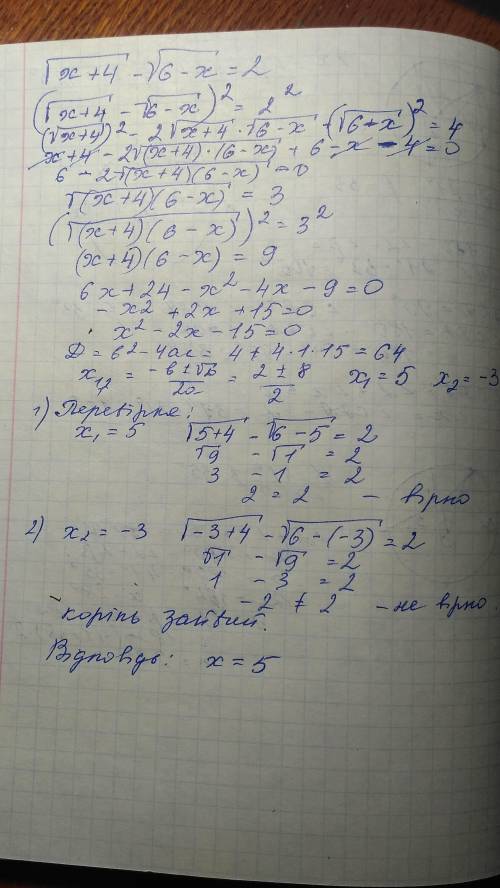 √(x+4) - √(6-x) = 2
(√(x+4) - √(6-x))² = 2²
(√(x+4))² - 2√(x+4) · √(6-x) + (√(6+x))² = 4
x+4 - 2√((x+4)·(6-x)) + 6 - x - 4 = 0
6 - 2√((x+4)(6-x)) = 0
√((x+4)(6-x)) = 3
(√((x+4)(6-x)))² = 3²
(x+4)(6-x) = 9
6x + 24 - x² - 4x - 9 = 0
- x² + 2x + 15 = 0
x² - 2x - 15 = 0
D = b² - 4ac = 4 + 4·1·15 = 64
x₁,₂ = (-b ± √D)/2a = (2 ± 8)/2 x₁ = 5 x₂ = -3
1) Перевірка:
x₁ = 5 √(5+4) - √(6-5) = 2
√9 - √1 = 2
3 - 1 = 2
2 = 2 - вірно
2) x₂ = -3 √(-3+4) - √(6-(-3)) = 2
√1 - √9 = 2
1 - 3 = 2
-2 ≠ 2 - не вірно
- корінь зайвий.
Відповідь: x = 5